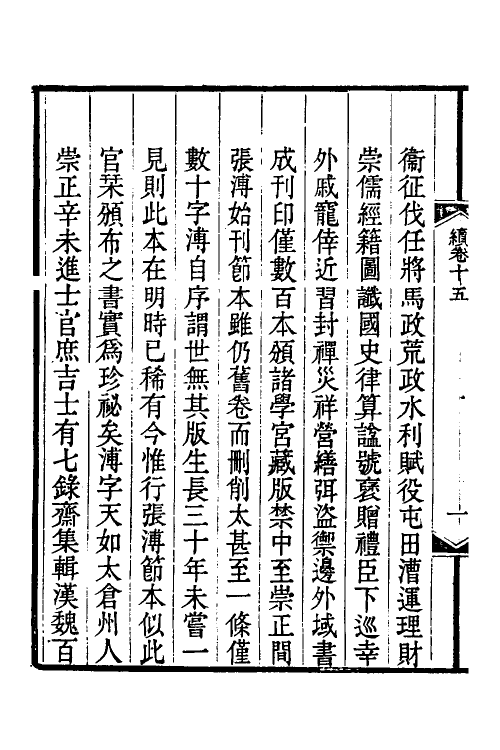 續卷十五
一
衞征伐任將馬政荒政水利賦役屯田漕運理財
崇儒經籍圖讖國史律算諡號褒贈禮臣下巡幸
外戚寵倖近習封禪災祥營繕弭盜禦邊外域書
成刊印僅數百本頒諸學宮藏版禁中至崇正間
張溥始刊節本雖仍舊卷而刪削太甚至一條僅
數十字溥自序謂世無其版生長三十年未嘗一
見則此本在明時已稀有今惟行張溥節本似此
官栞頒布之書實爲珍祕矣溥字天如太倉州人
崇正辛未進士官庶吉士有七錄齋集輯漢魏百